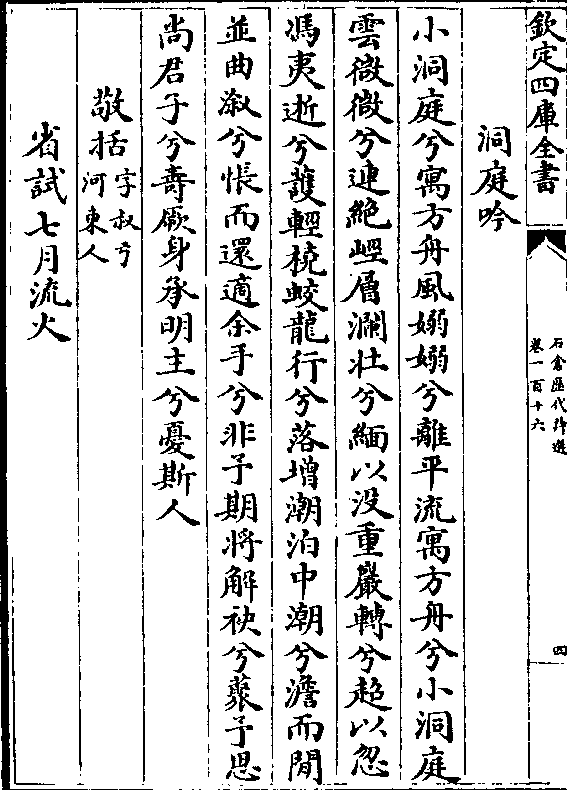 欽定四庫全書
石倉歷代詩選
卷一百十六
四
洞庭吟
小洞庭兮寓方舟風嫋嫋兮離平流寓方舟兮小洞庭
雲微微兮連絶崿層瀾壮兮緬以没重巖轉兮超以忽
馮夷逝兮護輕橈蛟龍行兮落増潮泊中潮兮澹而閒
並曲溆兮悵而還適余手兮非子期將解袂兮藂予思
尚君子兮壽厥身承明主兮憂斯人
敬括字叔弓
河東人
省試七月流火